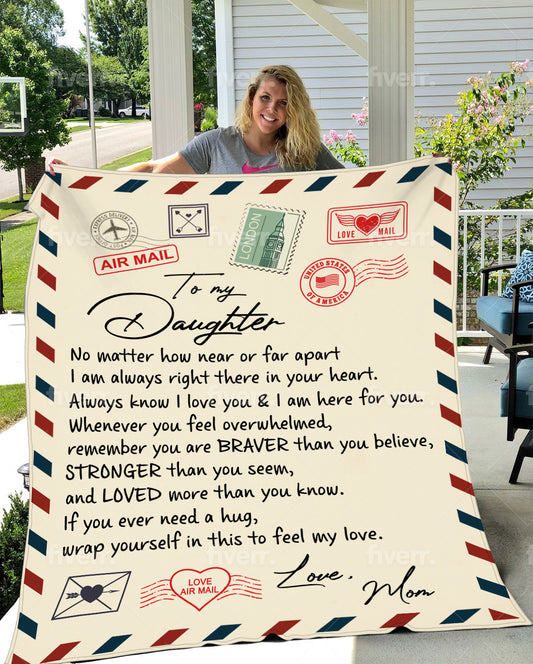 fiverr.
EXPRESS DELIVERY
AIR MAIL
LONDON
LOVE MAIL
UNITED STATES
OF AMERICA
To my
Daughter
No matter how near or far apart
I am always right there in your heart.
Always know I love you & I am here for you.
Whenever you feel overwhelmed,
remember you are BRAVER than you believe,
STRONGER than you seem,
and LOVED more than you know.
If you ever need a hug,
wrap yourself in this to feel my love.
LOVE
AIR MAIL
Love,
Mom